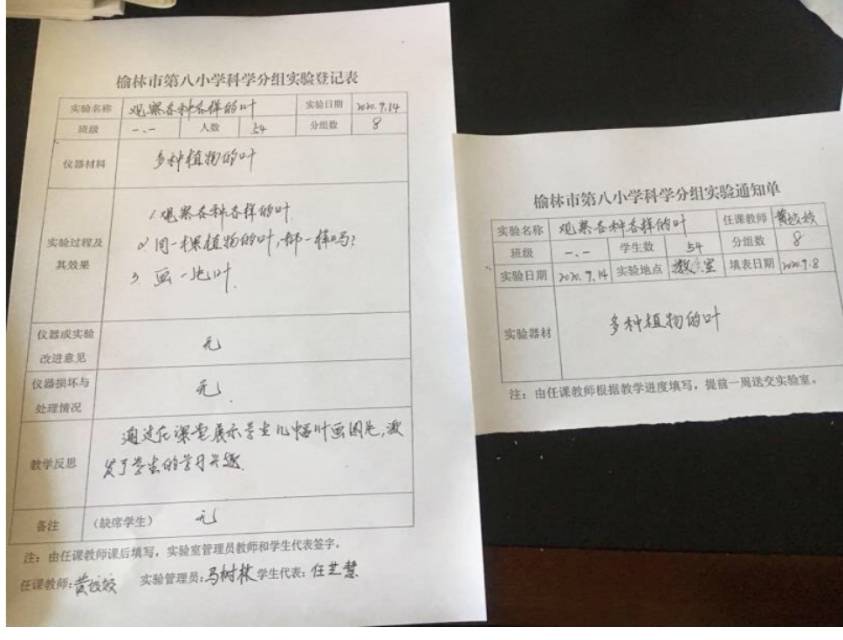 榆林市第八小学科学分组实验登记表
实验名称 观察各种各样的叶 实验日期 2020.9.14
班级 一.一 人数 54 分组数 8
仪器材料 多种植物的叶
实验过程及其效果
1.观察各种各样的叶
2.同一棵植物的叶,都一样吗?
3.画一片叶.
仪器或实验改进意见 无
仪器损坏与处理情况 无.
教学反思
通过在课堂展示学生几幅叶画图片,激
发了学生的学习兴趣.
备注 (缺席学生) 无
注：由任课教师课后填写，实验室管理员教师和学生代表签字。
任课教师:黄姣姣 实验管理员:马树林 学生代表:任艺慧
榆林市第八小学科学分组实验通知单
实验名称 观察各种各样的叶 任课教师 黄姣姣
班级 一.一 学生数 54 分组数 8
实验日期 2020.9.14 实验地点 教室 填表日期 2020.9.8
实验器材 多种植物的叶
注：由任课教师根据教学进度填写，提前一周送交实验室。